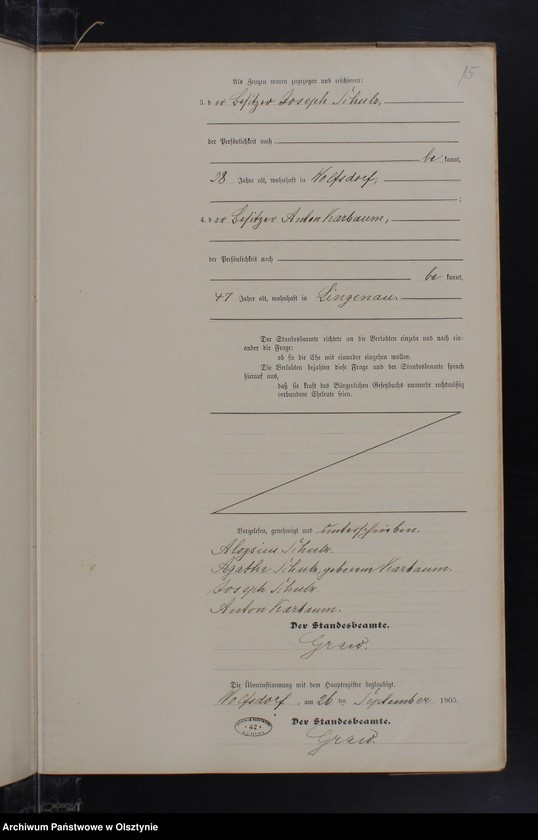 15
Als Zeugen waren zugezogen und erschienen:
3. der Besitzer Joseph Schulz,
der Persönlichkeit nach
be kannt,
38 Jahre alt, wohnhaft in Wolfsdorf,
;
4. der Besitzer Anton Karbaum,
der Persönlichkeit nach
be kannt,
47 Jahre alt, wohnhaft in Lingenau.
Der Standesbeamte richtete an die Verlobten einzeln und nach ein-
ander die Frage:
ob sie die Ehe mit einander eingehen wollen.
Die Verlobten bejahten diese Frage und der Standesbeamte sprach
hierauf aus,
daß sie kraft des Bürgerlichen Gesetzbuchs nunmehr rechtmäßig
verbundene Eheleute seien.
Vorgelesen, genehmigt und unterschrieben.
Aloysius Schulz.
Agathe Schulz, geborene Karbaum.
Joseph Schulz.
Anton Karbaum.
Der Standesbeamte.
Graw.
Die Übereinstimmung mit dem Hauptregister beglaubigt.
Wolfsdorf, am 26 ten September 1905.
Der Standesbeamte.
42
Graw.
Archiwum Państwowe w Olsztynie